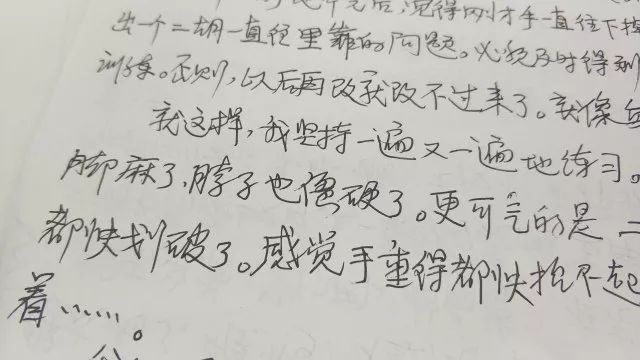 觉得刚才手一直往下
出一个二胡一直往里靠的问题。必须及时得到
训练。否则,以后再改就改不过来了。就像
就这样,我坚持一遍又一遍地练习。
脚麻了,脖子也僵硬了。更可气的是二
都快划破了。感觉手重得都快抬不起
着……。